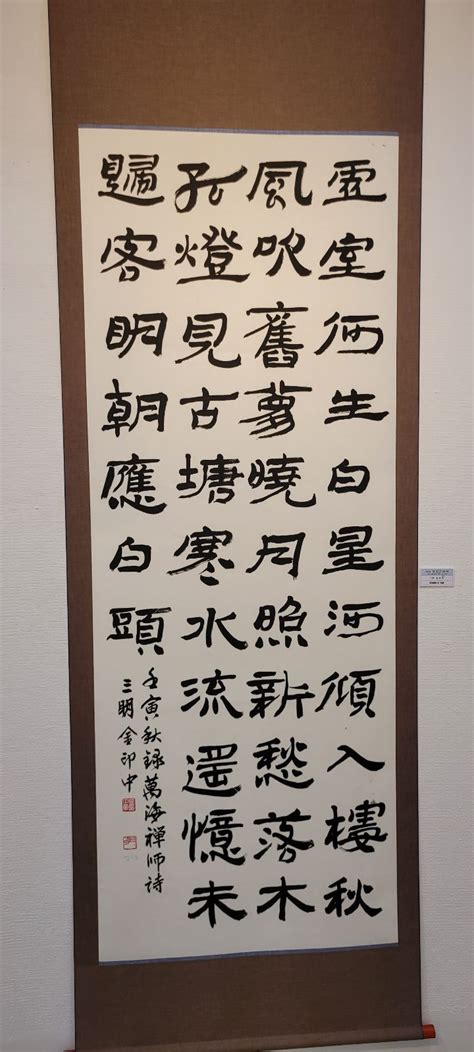 虛室何生白星河傾入樓秋
風吹舊夢曉月照新愁落木
孤燈見古塘寒水流遙憶未
歸客明朝應白頭
壬寅秋錄萬海禪師詩
三明金印中